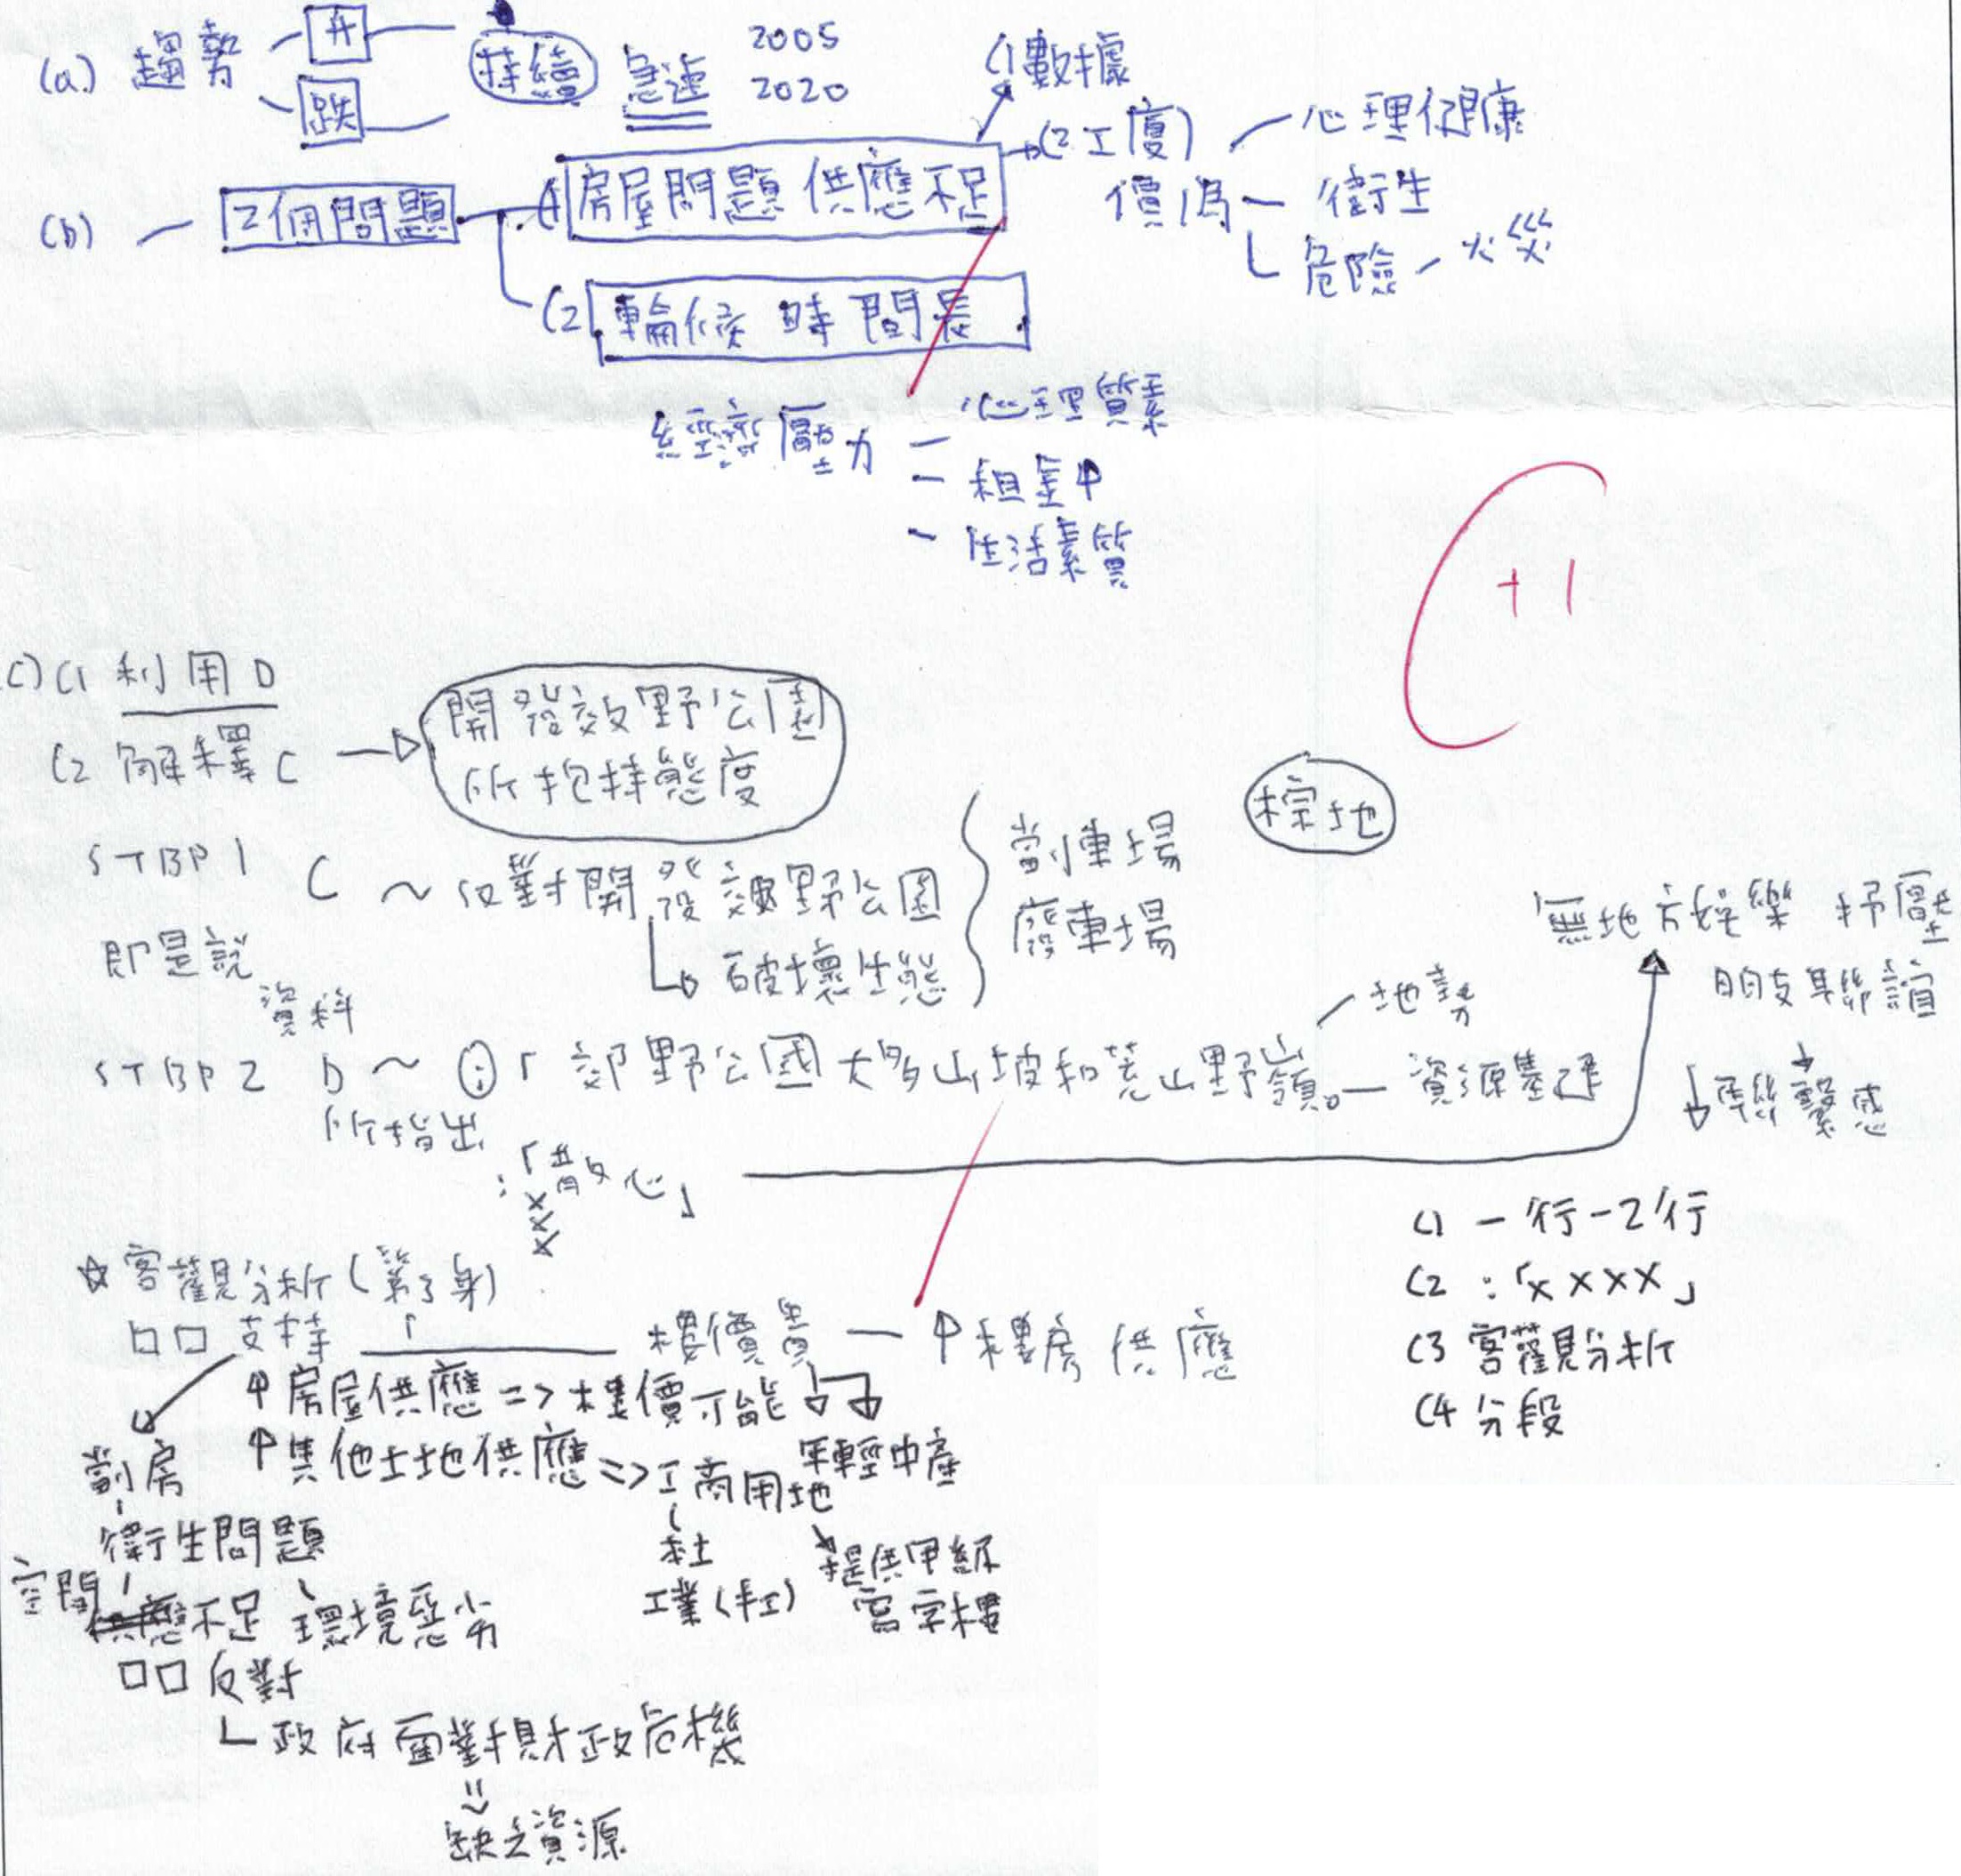 (a) 趨勢 升 持續 急速 2005
跌 2020
(1 數據
(2 工廈)
心理健康
衛生
危險 火災
(b) 2個問題 (1 房屋問題 供應不足
(2 輪候時間長
經濟壓力 心理質素
租金↑
生活素質
+1
C) (1 利用D
(2 解釋C → 開發效野公園
所抱持態度
棕地
STEP 1 C ~ 反對開發效野公園
即是說 破壞生態
劏車場
廢車場
資料
STEP 2 D ~ ①「郊野公園大多山坡和荒山野嶺。
地勢
資源
所指出
:「散心」
xxx
無地方娛樂 抒壓
朋友聯誼
↓聯繫感
☆客觀分析(第3身)
口口 支持 「 樓價貴 — ↑樓房供應
↑房屋供應 => 樓價可能↓
↑其他土地供應 => 工商用地 年輕中產
社
工業(手工) 提供甲級
寫字樓
劏房
衛生問題
空間
供應不足 環境惡劣
口口 反對
政府面對財政危機
缺乏資源
(1 一行-2行
(2 :「xxxx」
(3 客觀分析
(4 分段